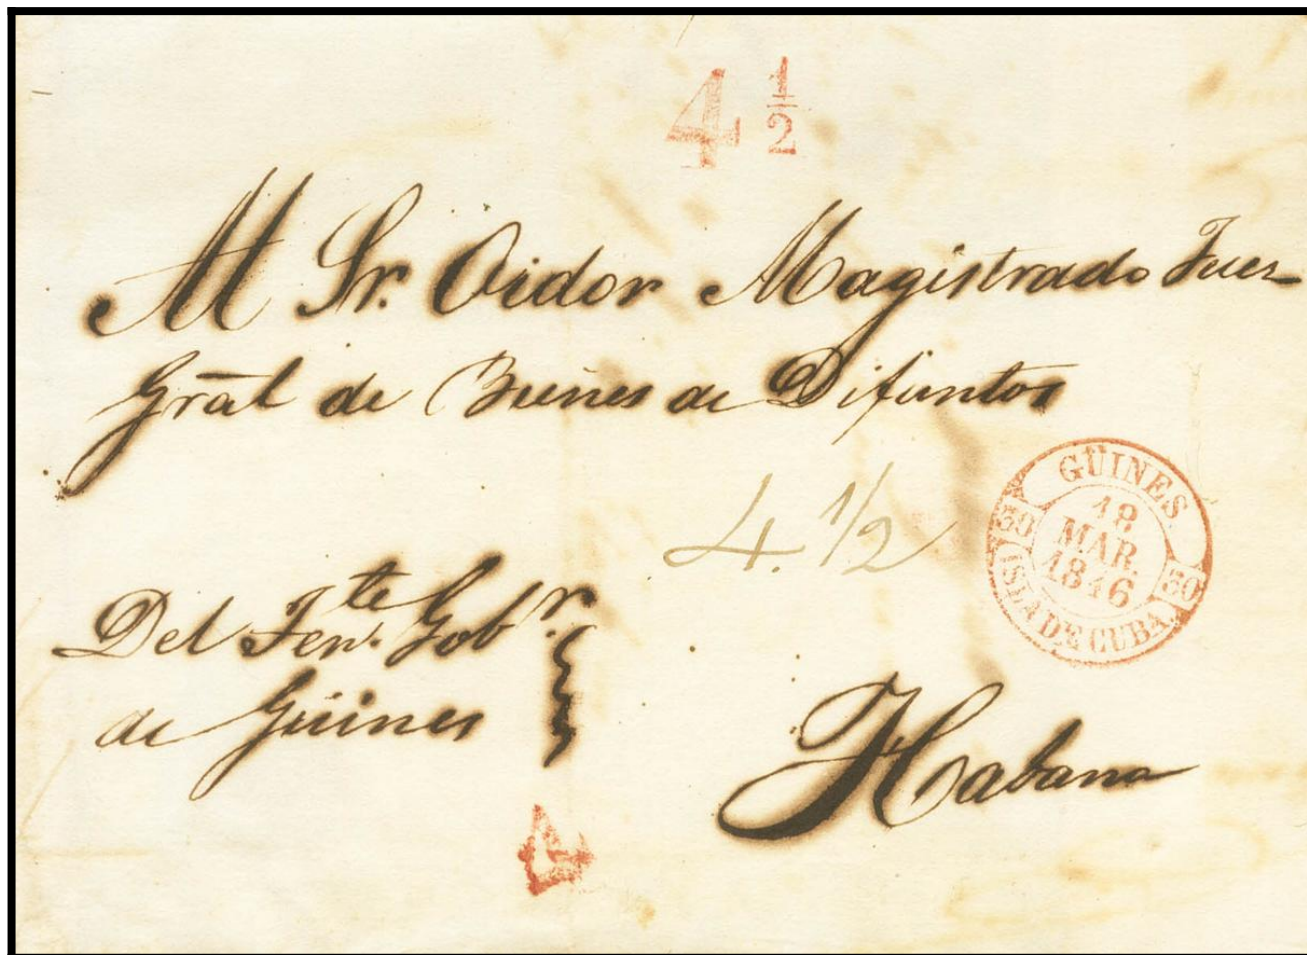 4 1/2
Al Sr. Oidor Magistrado Juez
Grāl de Bienes de Difuntos
4. 1/2
GÜINES
18
MAR.
1846
30 30
ISLA DE CUBA
Del Tente. Gobr.
de Güines
Habana